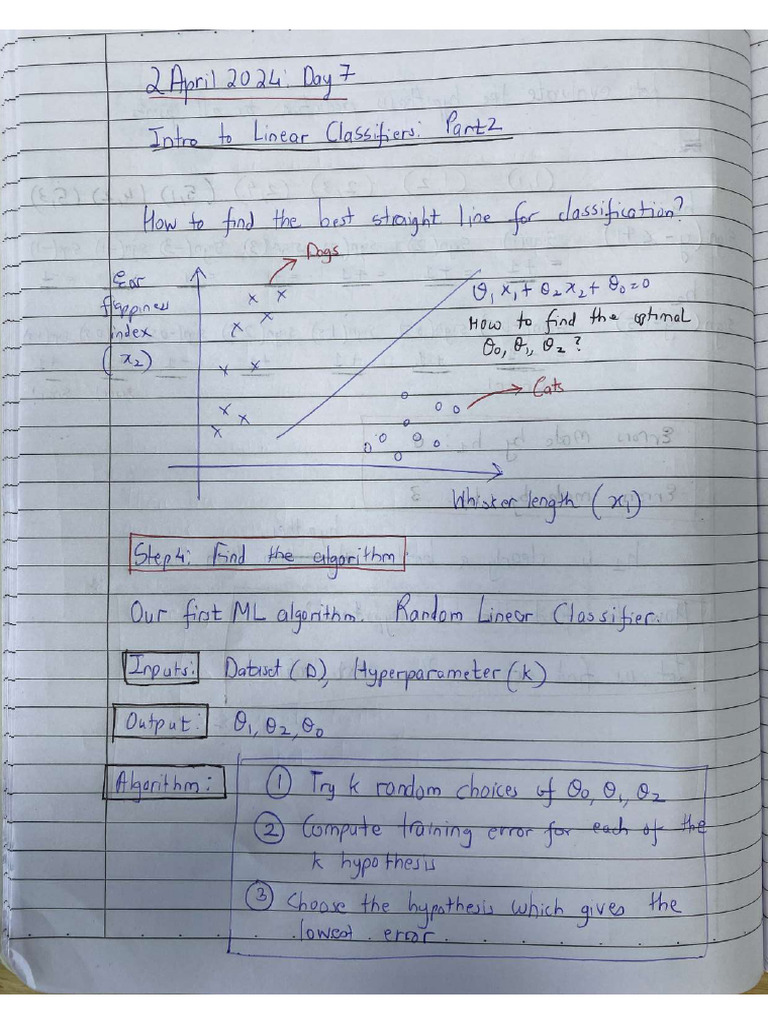 2 April 2024: Day 7
Intro to Linear Classifiers: Part 2
How to find the best straight line for classification?
Dogs
Ear
flappiness
index
(x₂)
θ₁x₁ + θ₂x₂ + θ₀ = 0
How to find the optimal
θ₀, θ₁, θ₂?
Cats
Whisker length (x₁)
Step 4: Find the algorithm
Our first ML algorithm. Random Linear Classifier.
Inputs: Dataset (D), Hyperparameter (k)
Output: θ₁, θ₂, θ₀
Algorithm: ① Try k random choices of θ₀, θ₁, θ₂
② Compute training error for each of the
k hypothesis
③ Choose the hypothesis which gives the
lowest error